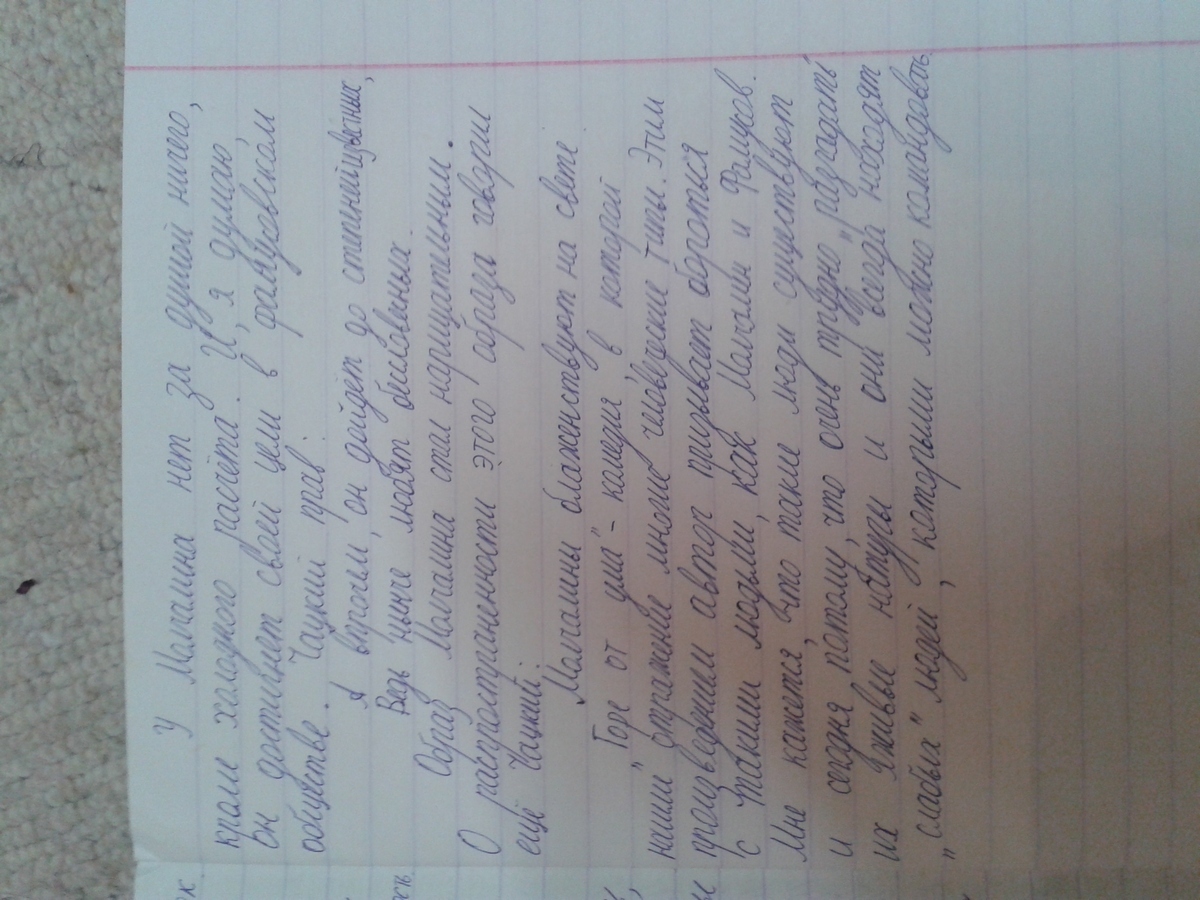 У Молчалина нет за душой ничего,
кроме холодного расчёта. И, я думаю,
он достигнет своей цели в фамусовском
обществе. Чацкий прав:
А впрочем, он дойдет до степеней известных,
Ведь нынче любят бессловесных.
Образ Молчалина стал нарицательным.
О распространенности этого образа говорил
ещё Чацкий:
Молчалины блаженствуют на свете
"Горе от ума" - комедия, в которой
нашли отражение многие человеческие типы. Этим
произведении автор призывает бороться
с такими людьми, как Молчалин и Фамусов.
Мне кажется, что такие люди существуют
и сегодня потому, что очень трудно "разгадать"
их лживые натуры и они всегда находят
"слабых" людей, которыми можно командовать